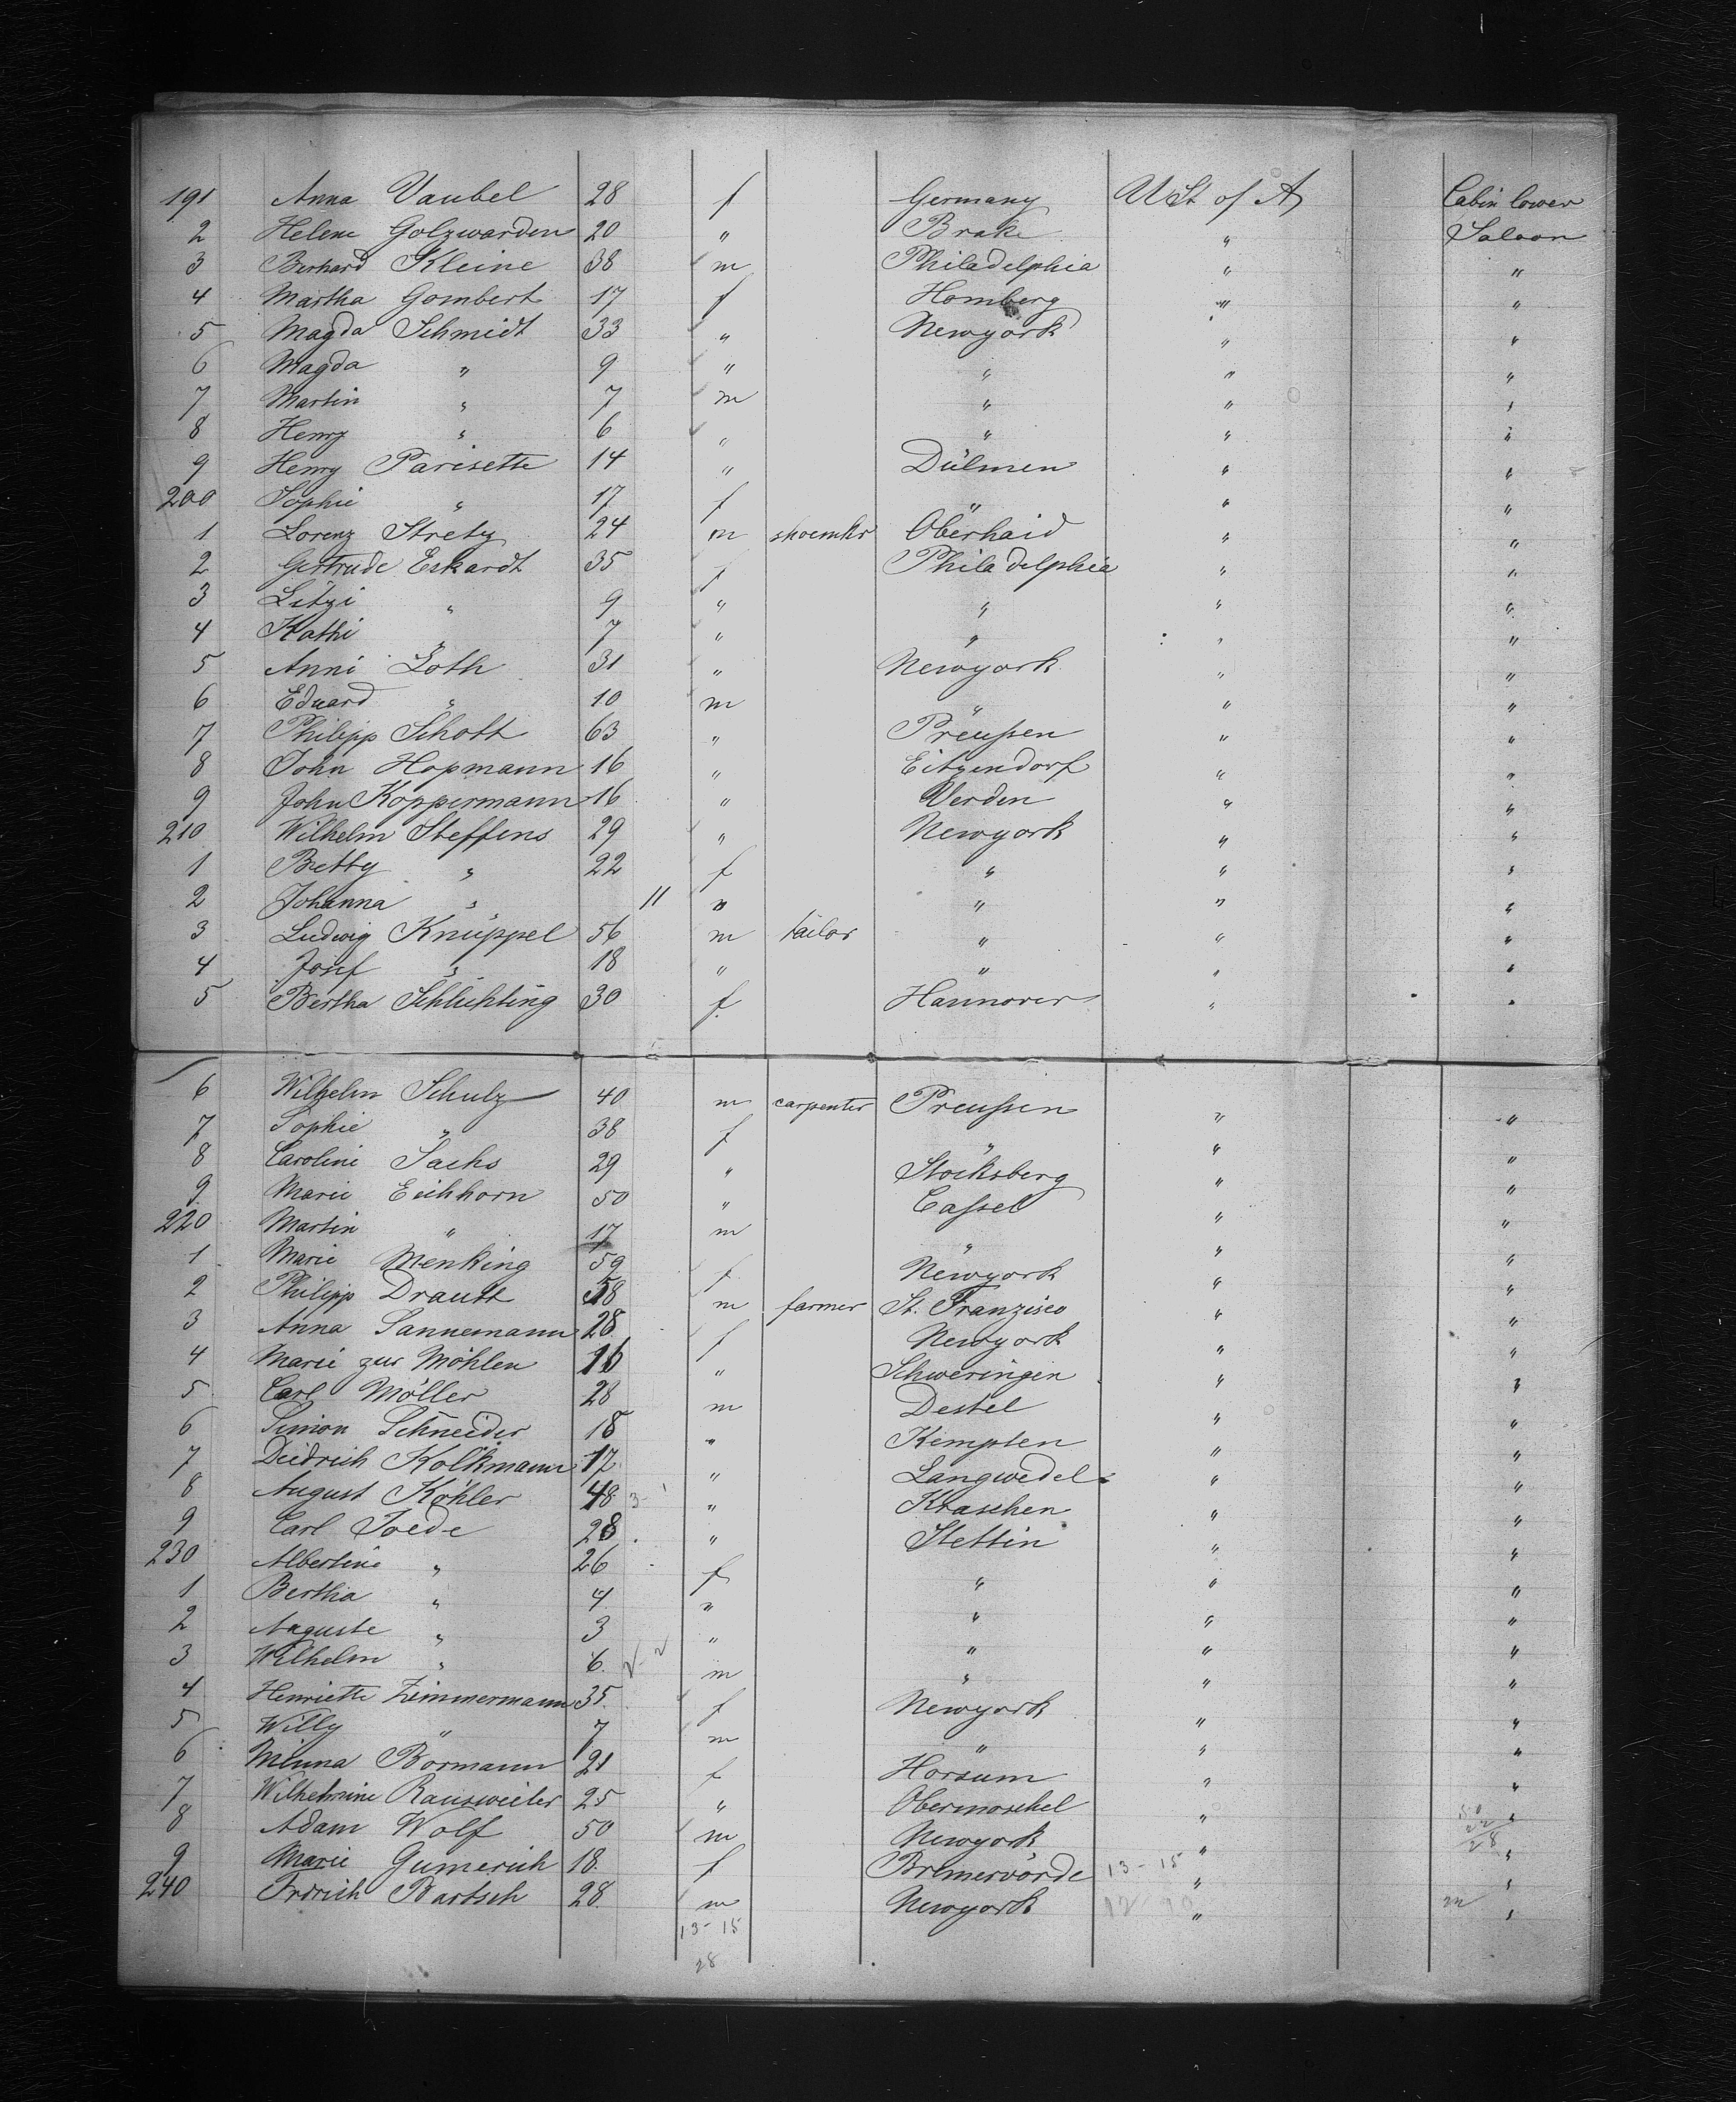 191 Anna Vaubel 28 f Germany U St of A Cabin lower
2 Helene Golzwarden 20 " Brake " Saloon
3 Berhard Kleine 38 m Philadelphia " "
4 Martha Gombert 17 f Homberg " "
5 Magda Schmidt 33 " Newyork " "
6 Magda " 9 " " " "
7 Martin " 7 m " " "
8 Henry " 6 " " " "
9 Henry Parisette 14 " Dülmen " "
200 Sophie " 17 f " " "
1 Lorenz Strety 24 m shoemkr Oberhaid " "
2 Gertrude Eskardt 35 f Philadelphia " "
3 Litzi " 9 " " " "
4 Kathi " 7 " " " "
5 Anni Loth 31 " Newyork " "
6 Eduard " 10 m " " "
7 Philipp Schott 63 " Preußen " "
8 John Hopmann 16 " Eitzendorf " "
9 John Koppermann 16 " Verden " "
210 Wilhelm Steffens 29 " Newyork " "
1 Betty " 22 f " " "
2 Johanna " 11 " " " "
3 Ludwig Knüppel 56 m tailor " " "
4 Josef " 18 " " " "
5 Bertha Schlichting 30 f Hannover " "
6 Wilhelm Schulz 40 m carpenter Preußen " "
7 Sophie " 38 f " " "
8 Caroline Sachs 29 " Stocksberg " "
9 Marie Eichhorn 50 " Cassel " "
220 Martin " 17 m " " "
1 Marie Menking 59 f Newyork " "
2 Philipp Drautt 58 m farmer St. Franzisco " "
3 Anna Sannemann 28 f Newyork " "
4 Marie zur Möhlen 16 " Schweringen " "
5 Carl Möller 28 m Destel " "
6 Simon Schneider 18 " Kempten " "
7 Diedrich Kolkmann 17 " Langwedel " "
8 August Köhler 48 " Kraschen " "
9 Carl Toede 28 " Stettin " "
230 Albertine " 26 f " " "
1 Bertha " 4 " " " "
2 Auguste " 3 " " " "
3 Wilhelm " 6 m " " "
4 Henriette Zimmermann 35 f Newyork " "
5 Willy " 7 m " " "
6 Minna Bormann 21 f Horsum " "
7 Wilhelmine Rausweiler 25 " Obermoschel " "
8 Adam Wolf 50 m Newyork " "
9 Marie Gumerich 18 f Bremervörde 13-15 " "
240 Frdrich Bartsch 28 m Newyork " "
13-15
28